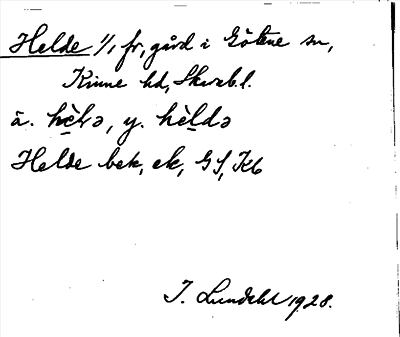 Helde 1/1 fr, gård i Götene sn,
Kinne hd, Skarab. l.
ä. hèlə, y. hèldə
Helde bek, ek, GS, Kb
I. Lundahl 1928.